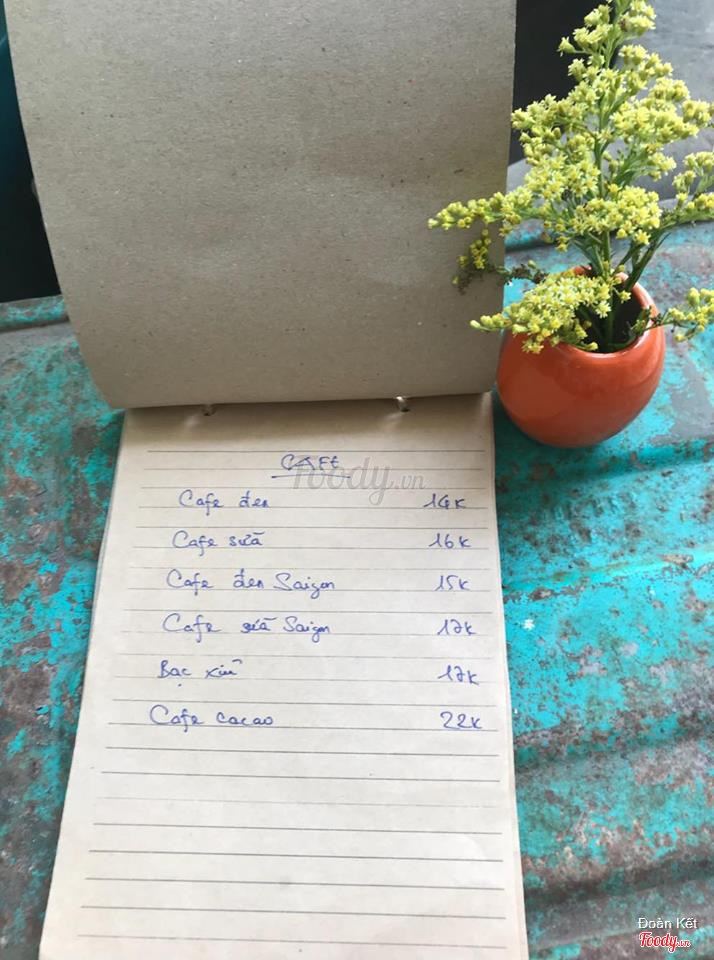 CAFE
Cafe đen 14K
Cafe sữa 16K
Cafe đen Saigon 15K
Cafe sữa Saigon 17K
Bạc xỉu 17K
Cafe cacao 22K
Foody.vn
Đoàn Kết
Foody.vn